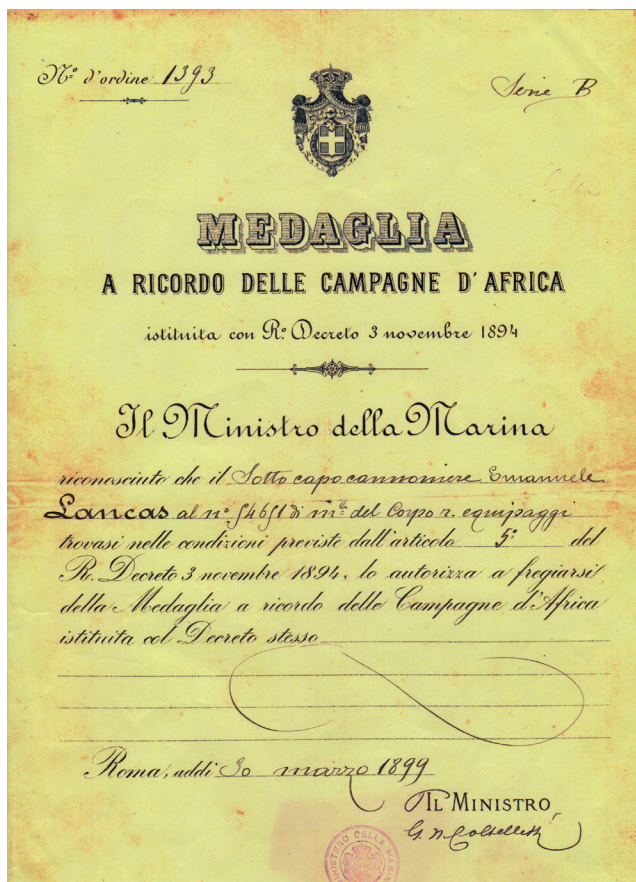 Nº d'ordine 1393
Serie B
MEDAGLIA
A RICORDO DELLE CAMPAGNE D'AFRICA
istituita con Rº. Decreto 3 novembre 1894
Il Ministro della Marina
riconosciuto che il Sotto capo cannoniere Emanuele
Lancas al nº 54651 di mla del Corpo r. equipaggi
trovasi nelle condizioni previste dall'articolo 5º del
R. Decreto 3 novembre 1894, lo autorizza a fregiarsi
della Medaglia a ricordo delle Campagne d'Africa
istituita col Decreto stesso
Roma, addì 30 marzo 1899
IL MINISTRO
MINISTERO DELLA MARINA